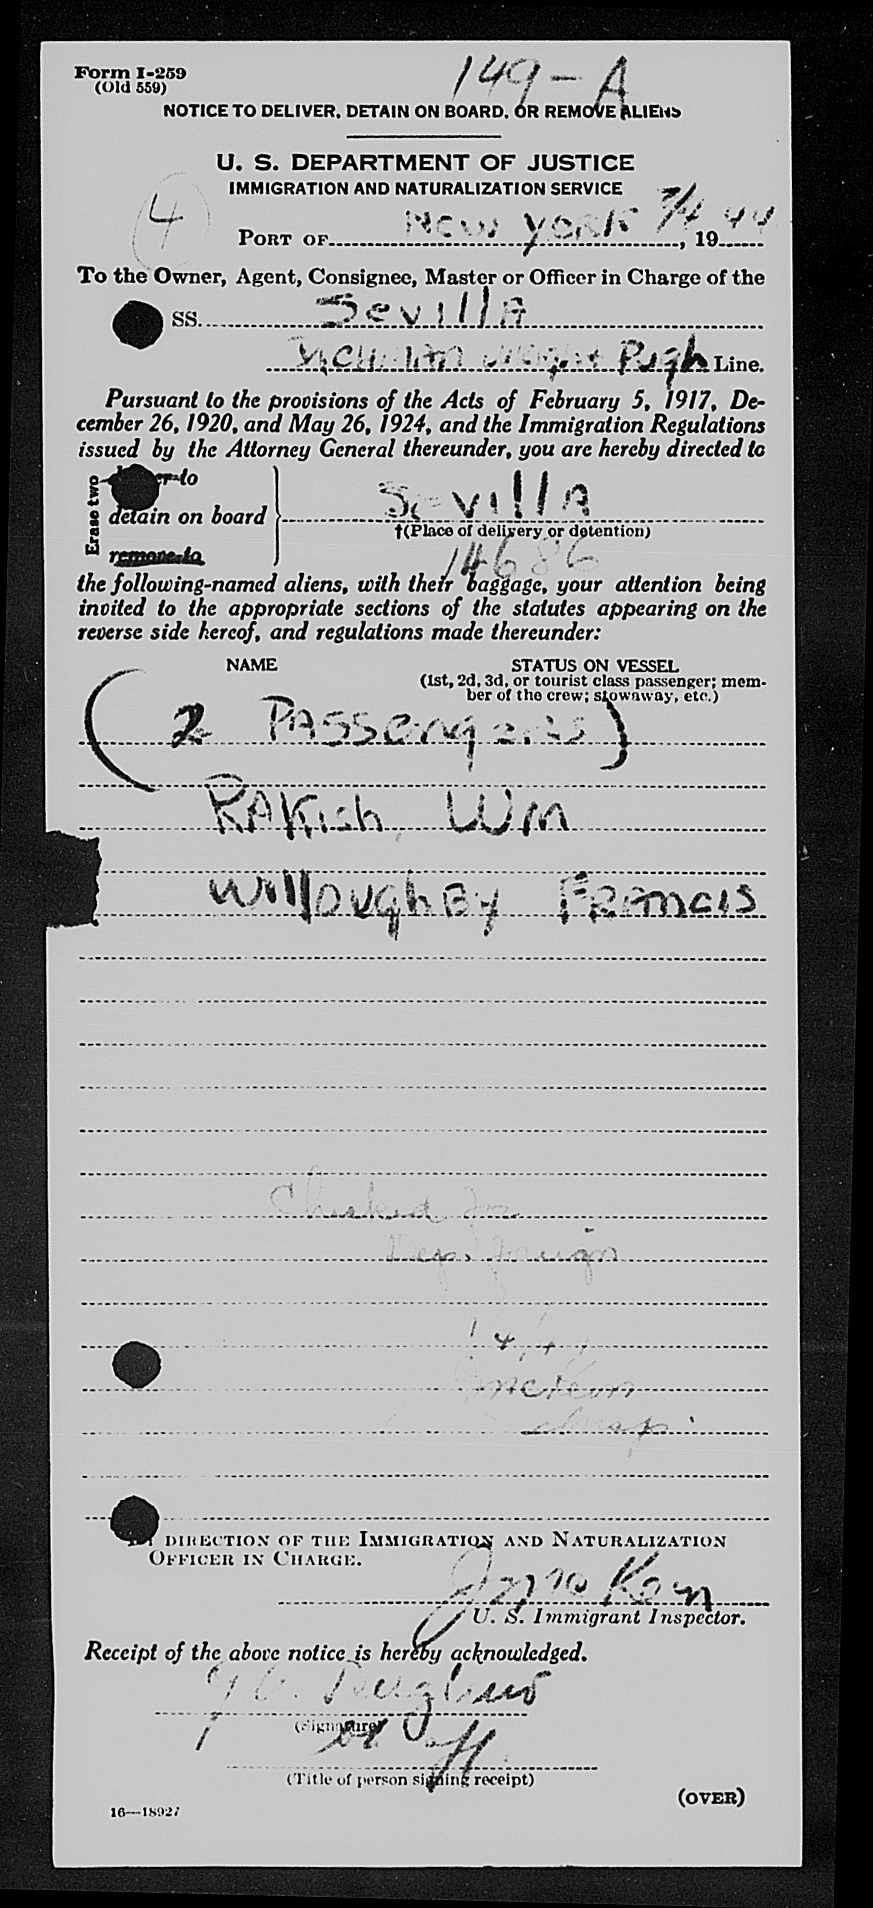 Form I-259
(Old 559)
149-A
NOTICE TO DELIVER, DETAIN ON BOARD, OR REMOVE ALIENS
U. S. DEPARTMENT OF JUSTICE
IMMIGRATION AND NATURALIZATION SERVICE
4
PORT OF New York 7/4, 1944
To the Owner, Agent, Consignee, Master or Officer in Charge of the
SS. Sevilla
Pugh Line.
Pursuant to the provisions of the Acts of February 5, 1917, De-
cember 26, 1920, and May 26, 1924, and the Immigration Regulations
issued by the Attorney General thereunder, you are hereby directed to
Erase two
to
detain on board
remove to
Sevilla
†(Place of delivery or detention)
14686
the following-named aliens, with their baggage, your attention being
invited to the appropriate sections of the statutes appearing on the
reverse side hereof, and regulations made thereunder:
NAME STATUS ON VESSEL
(1st, 2d, 3d, or tourist class passenger; mem-
ber of the crew; stowaway, etc.)
(2 Passengers)
RAKich, Wm
Willoughby Francis
Checked for
Dep. foreign
DIRECTION OF THE IMMIGRATION AND NATURALIZATION
OFFICER IN CHARGE.
U. S. Immigrant Inspector.
Receipt of the above notice is hereby acknowledged.
(Signature)
(Title of person signing receipt)
(OVER)
16—18927